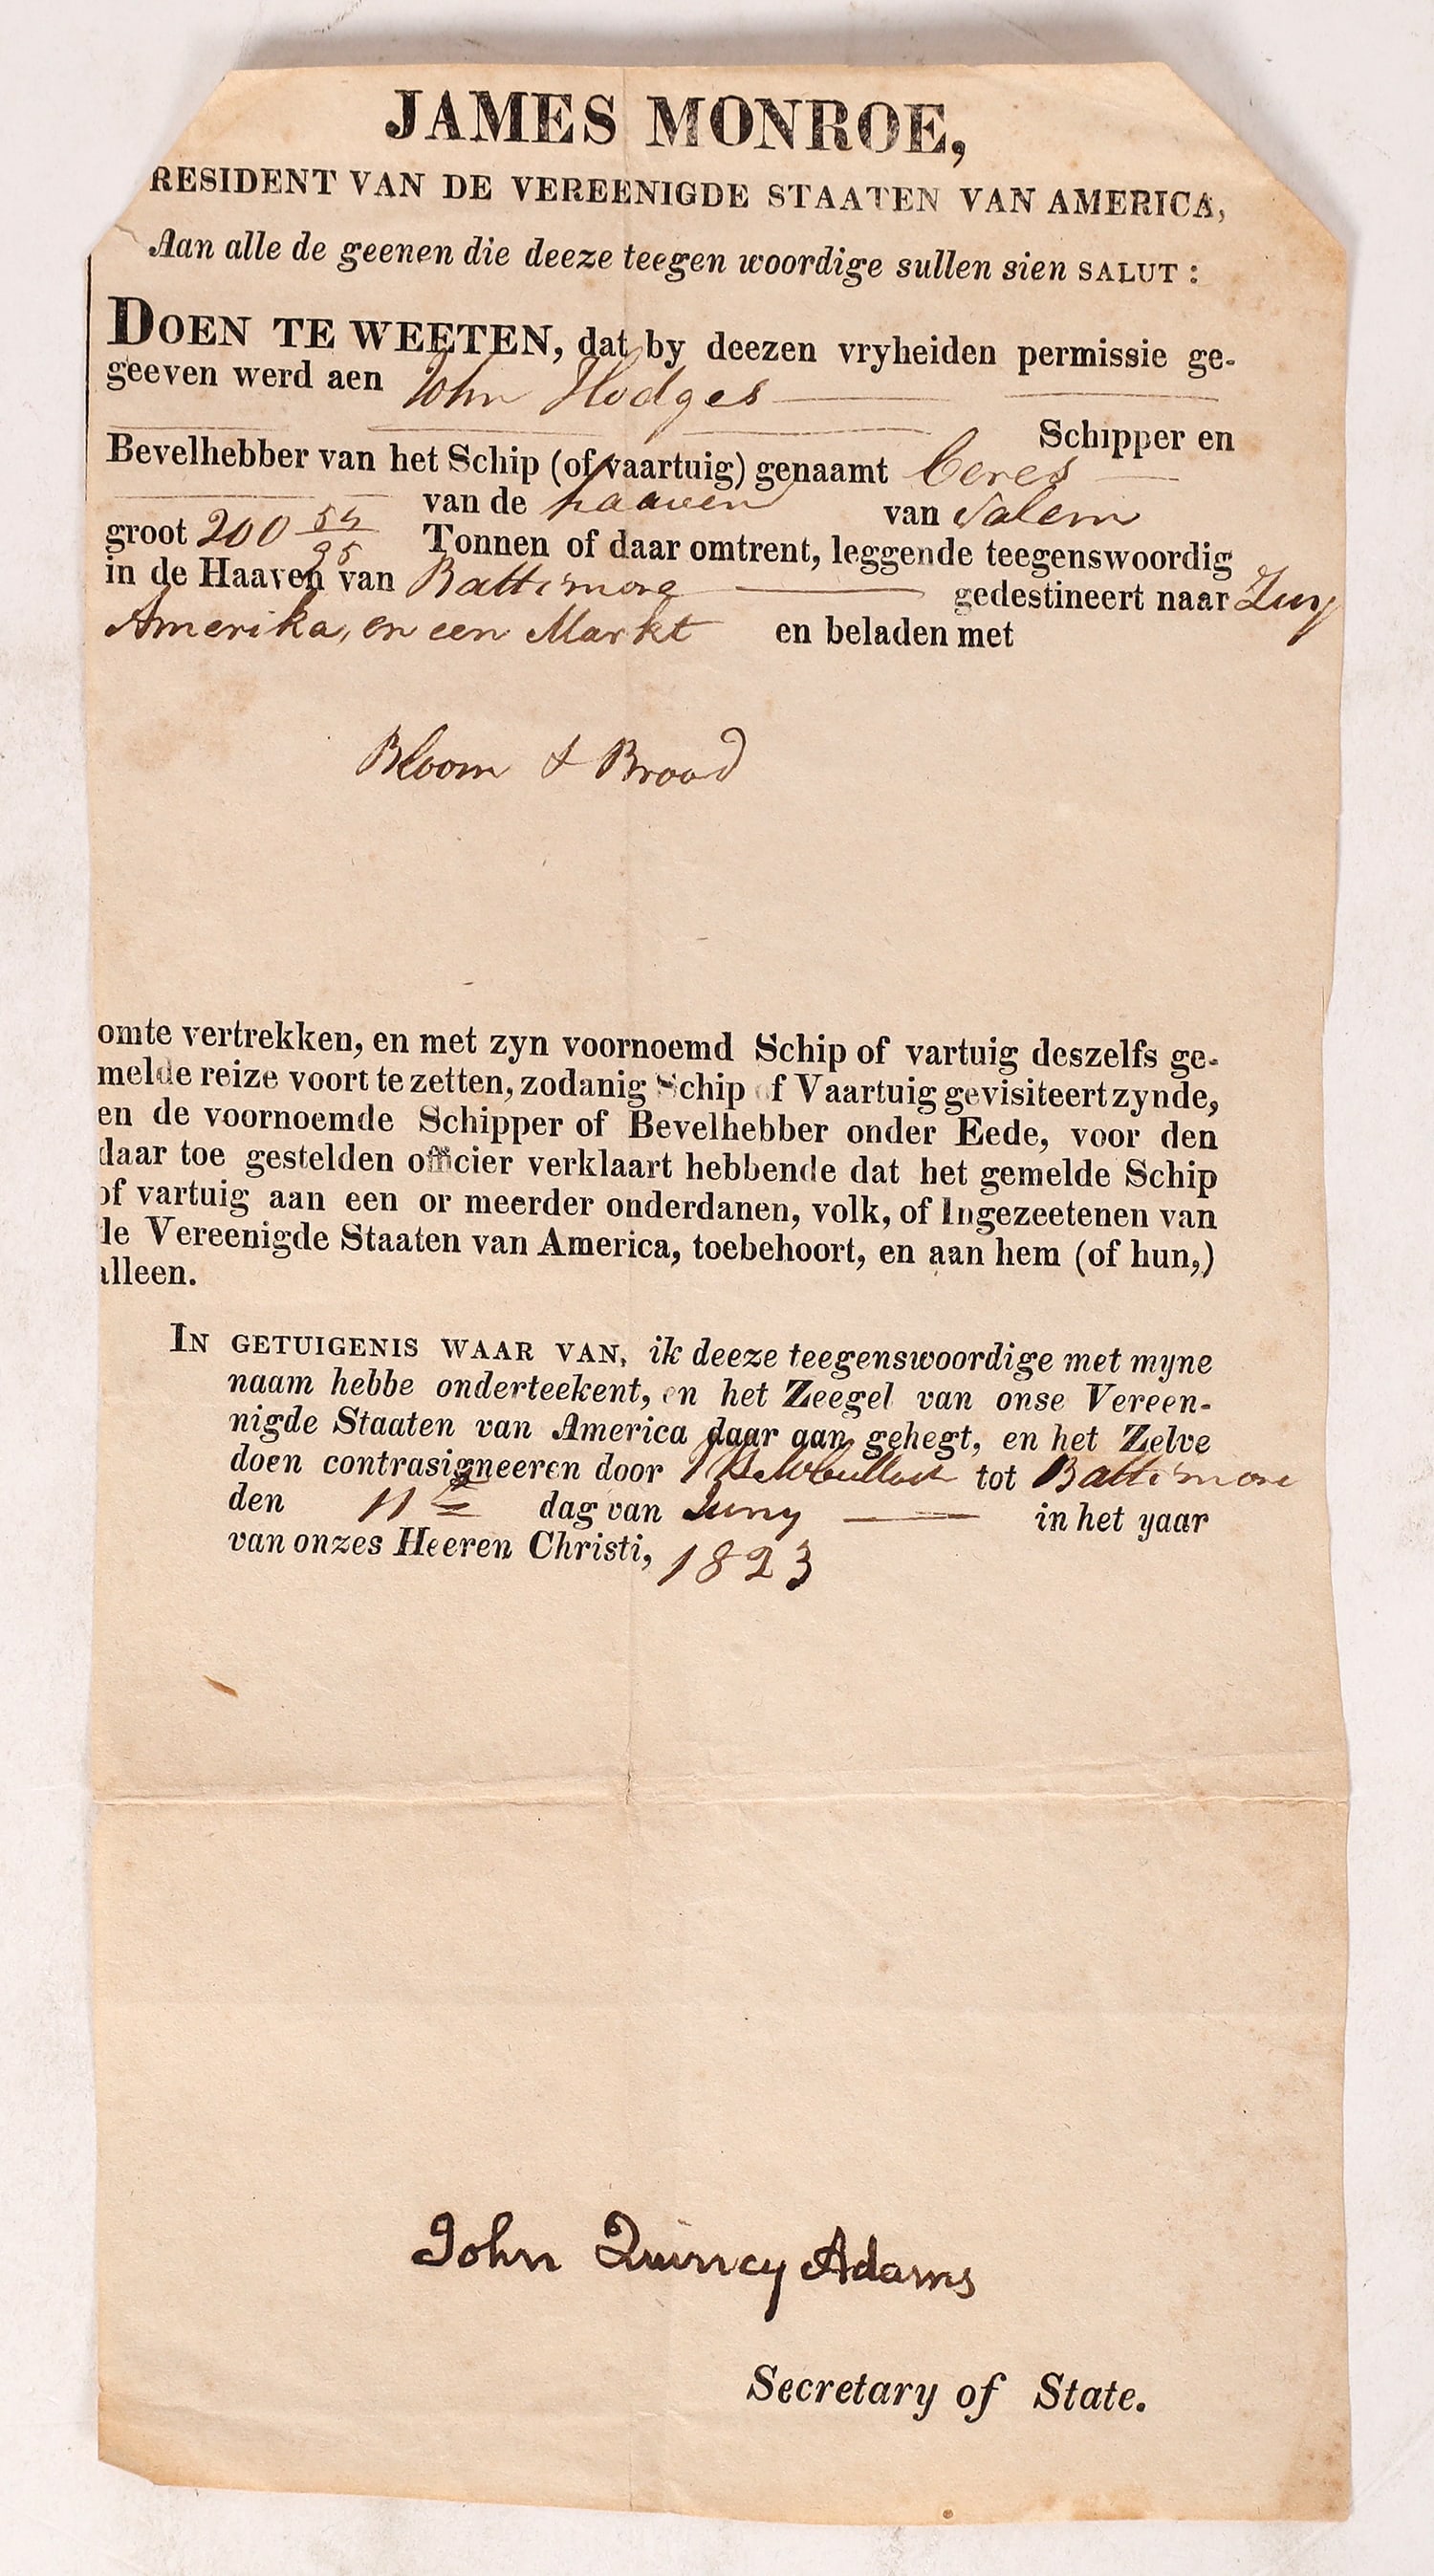 JAMES MONROE,
RESIDENT VAN DE VEREENIGDE STAATEN VAN AMERICA,
Aan alle de geenen die deeze teegen woordige sullen sien SALUT :
DOEN TE WEETEN, dat by deezen vryheiden permissie ge-
geeven werd aen John Hodges
Schipper en
Bevelhebber van het Schip (of vaartuig) genaamt Ceres
van de haaven van Salem
groot 200 54/95 Tonnen of daar omtrent, leggende teegenswoordig
in de Haaven van Baltimore gedestineert naar Zuy
Amerika, en een Markt en beladen met
Bloom & Brood
omte vertrekken, en met zyn voornoemd Schip of vartuig deszelfs ge-
melde reize voort te zetten, zodanig Schip of Vaartuig gevisiteert zynde,
en de voornoemde Schipper of Bevelhebber onder Eede, voor den
daar toe gestelden officier verklaart hebbende dat het gemelde Schip
of vartuig aan een or meerder onderdanen, volk, of Ingezeetenen van
de Vereenigde Staaten van America, toebehoort, en aan hem (of hun,)
alleen.
IN GETUIGENIS WAAR VAN, ik deeze teegenswoordige met myne
naam hebbe onderteekent, en het Zeegel van onse Vereen-
nigde Staaten van America daar aan gehegt, en het Zelve
doen contrasigneeren door McCulloch tot Baltimore
den 11 dag van Juny in het yaar
van onzes Heeren Christi, 1823
John Quincy Adams
Secretary of State.